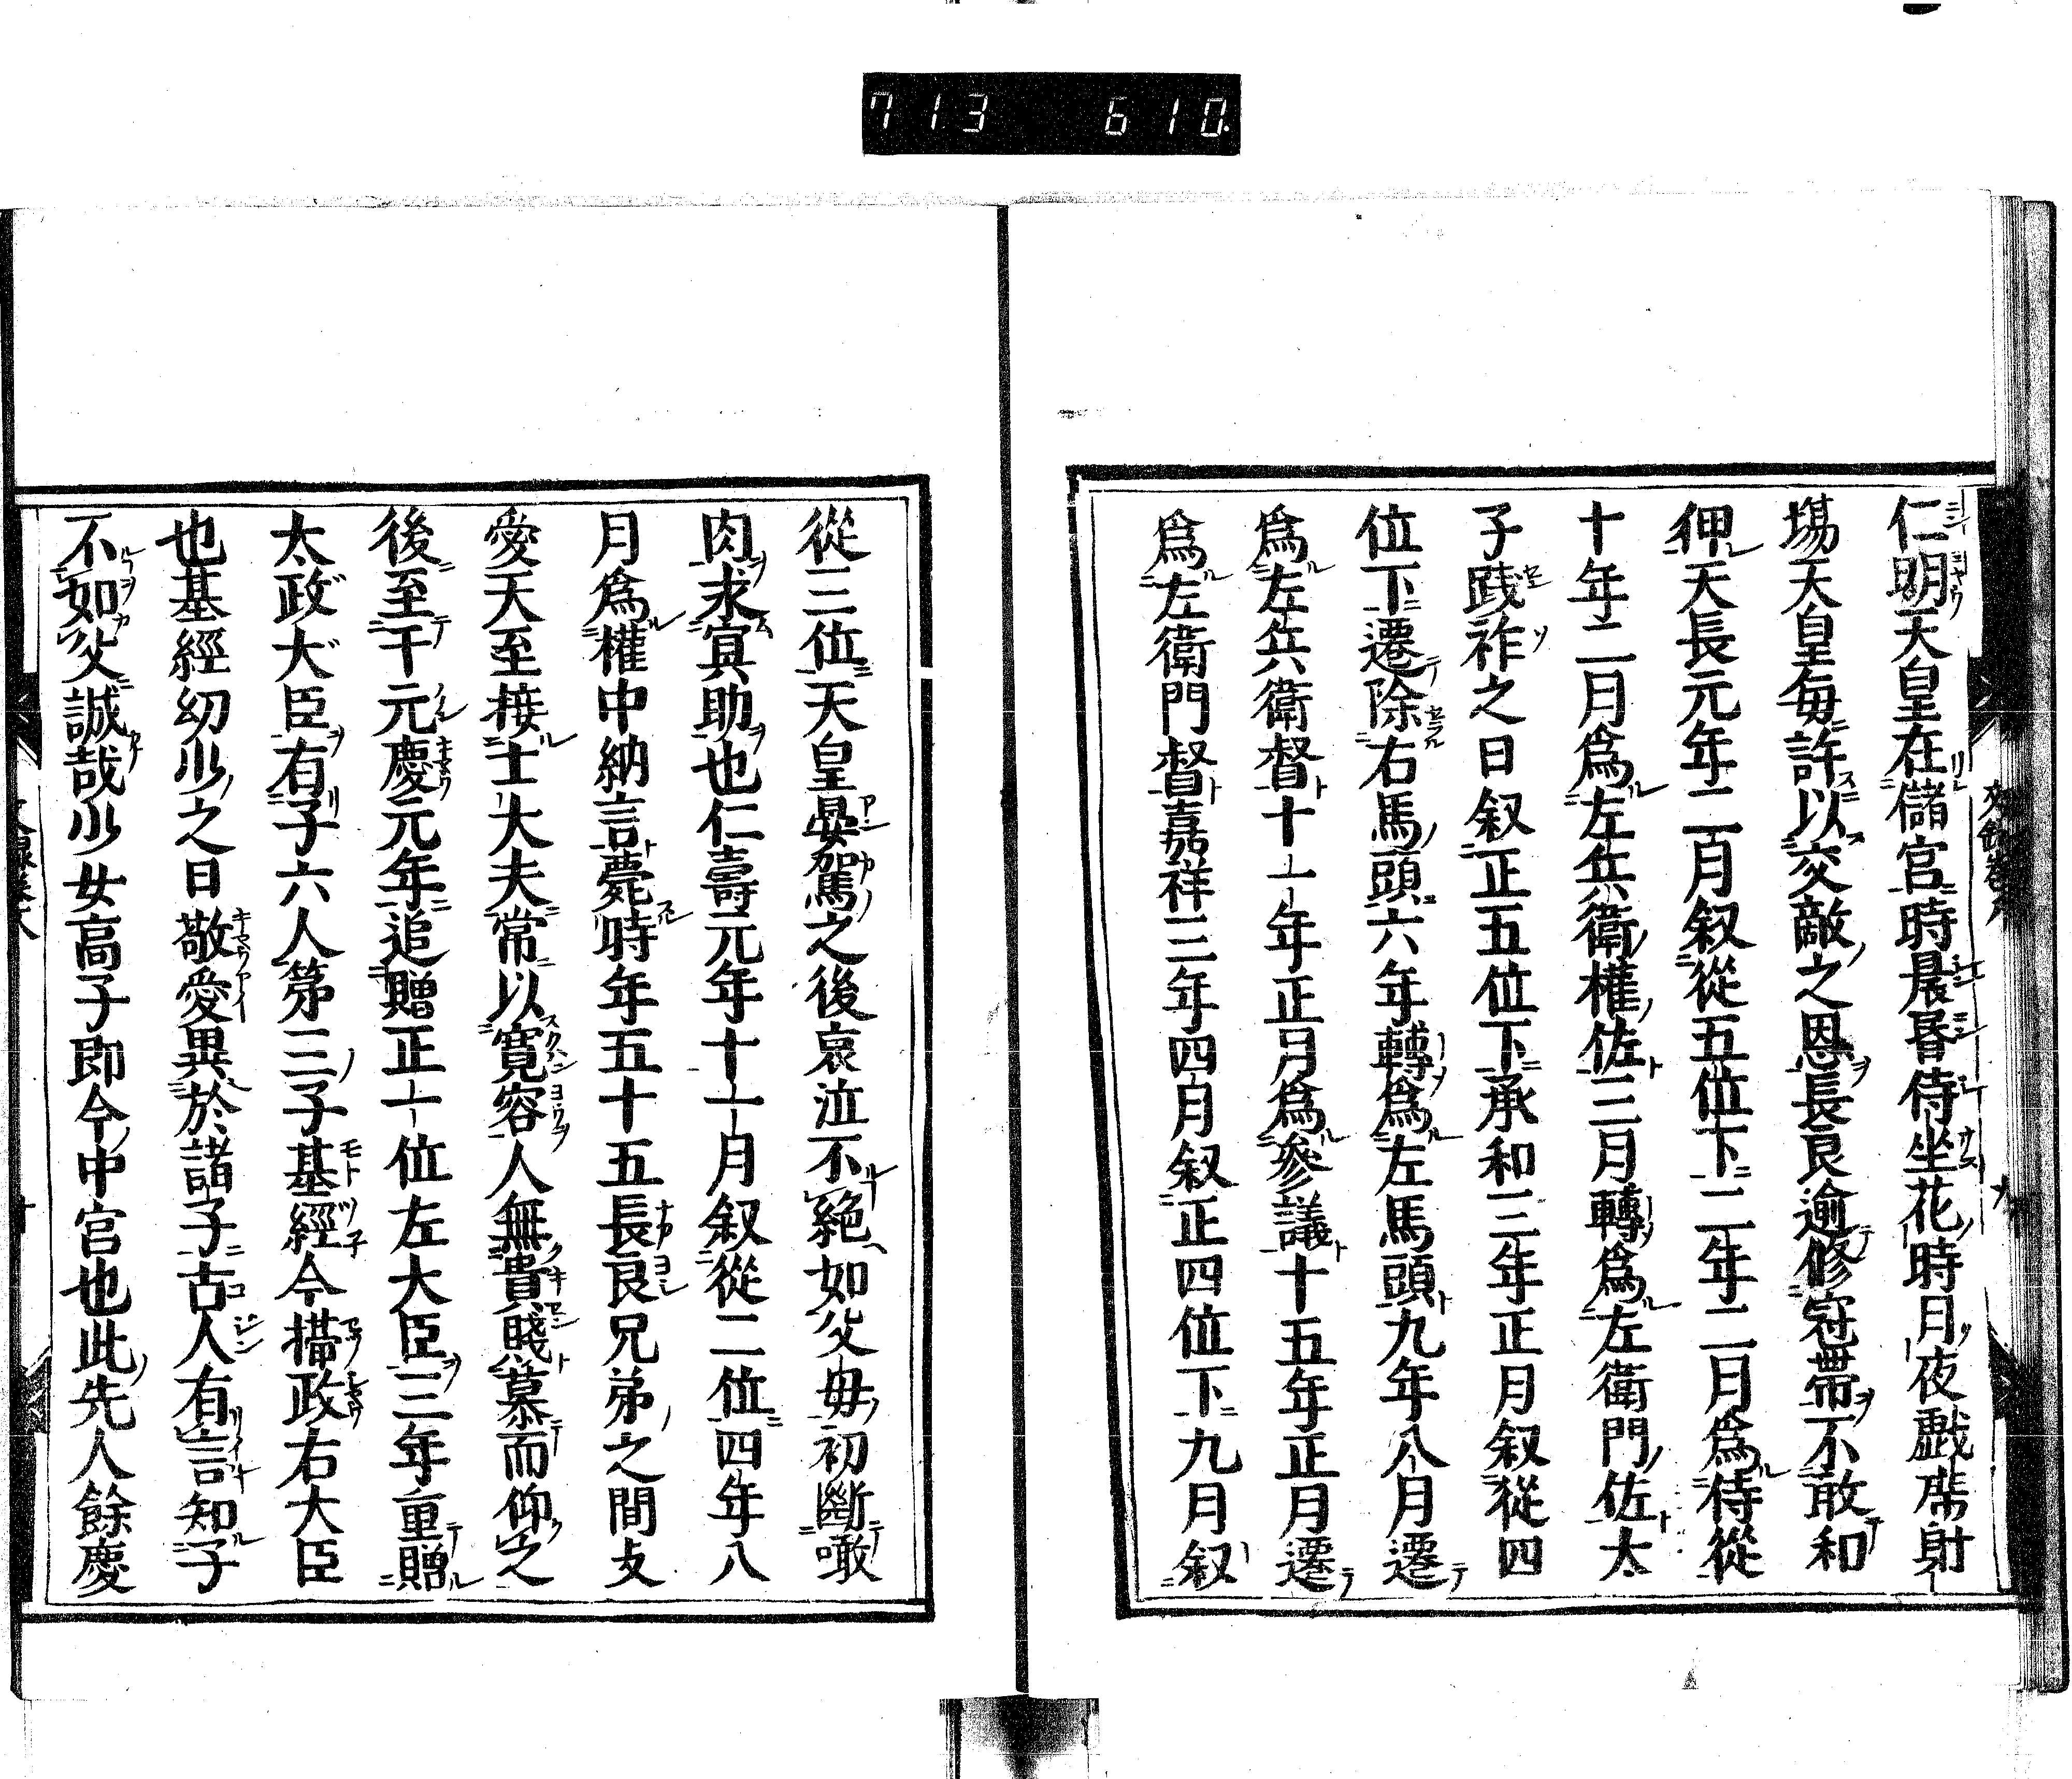 713 610.
仁明天皇在儲宮時晨昏侍坐花時月夜戲席射
場天皇毎許以交敵之恩長良逾修冠帶不敢和
狎天長元年二百月叙從五位下二年二月爲侍從
十年二月爲左兵衛權佐三月轉爲左衛門佐太
子踐祚之日叙正五位下承和三年正月叙從四
位下遷除右馬頭六年轉爲左馬頭九年八月遷
爲左兵衛督十一年正月爲參議十五年正月遷
爲左衛門督嘉祥三年四月叙正四位下九月叙
從三位天皇晏駕之後哀泣不絕如父母初斷噉
肉求冥助也仁壽元年十一月叙從二位四年八
月爲權中納言薨時年五十五長良兄弟之間友
愛天至接士大夫常以寬容人無貴賤慕而仰之
後至干元慶元年追贈正一位左大臣三年重贈
太政大臣有子六人第三子基經今攝政右大臣
也基經幼少之日敬愛異於諸子古人有言知子
不如父誠哉少女高子即今中宮也此先人餘慶